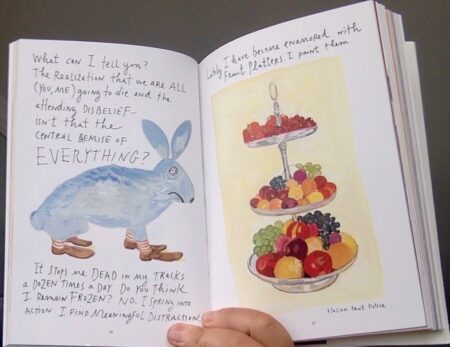 What can I tell you?
The Realization that we are ALL
(YOU, ME) going to die and the
attending DISBELIEF—
isn't that the
CENTRAL PREMISE OF
EVERYTHING?
It stops me DEAD in my TRACKS
a DOZEN times a DAY. Do you Think
I Remain FROZEN? NO. I SPRING INTO
ACTION. I FIND MEANINGFUL DISTRACTION.
Lately I have become enamored with
Fruit Platters. I paint them
ITALIAN Fruit Platter